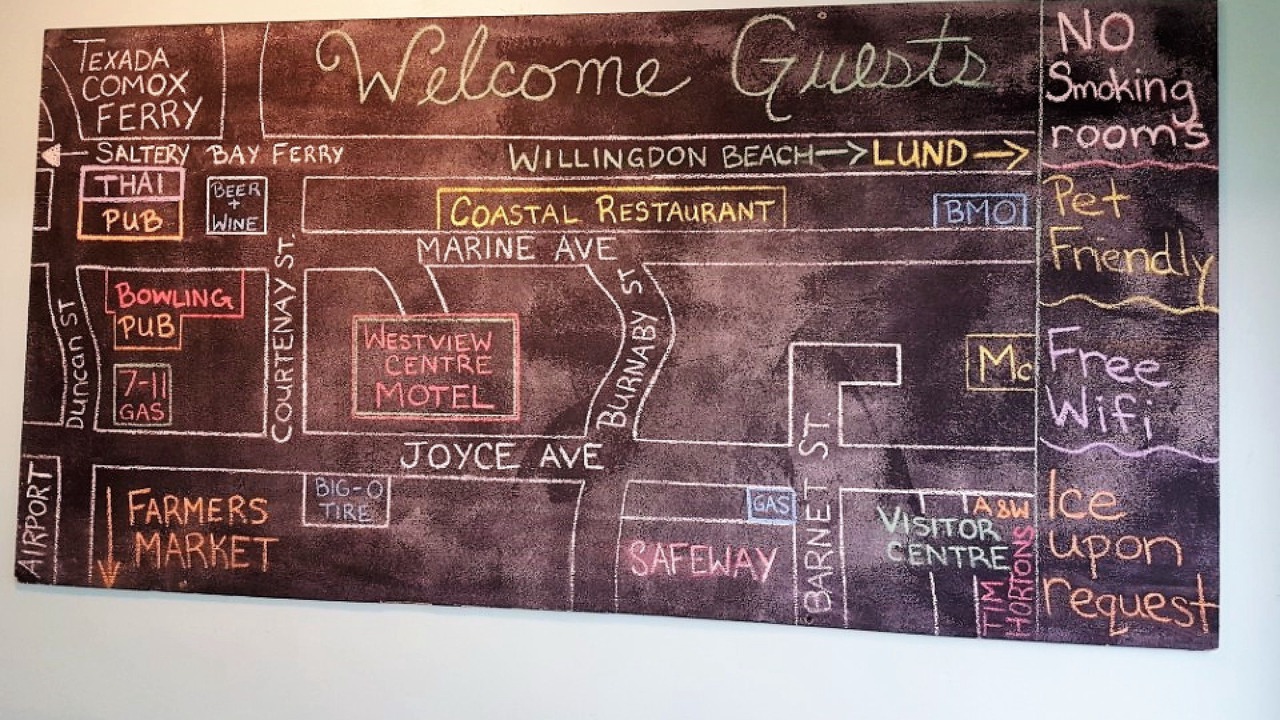 Welcome Guests
TEXADA
COMOX
FERRY
SALTERY BAY FERRY
WILLINGDON BEACH → LUND →
THAI
PUB
BEER
+
WINE
COASTAL RESTAURANT
BMO
MARINE AVE
Duncan ST
BOWLING
PUB
7-11
GAS
COURTENAY ST.
WESTVIEW
CENTRE
MOTEL
BURNABY ST
Mc
JOYCE AVE
AIRPORT
FARMERS
MARKET
BIG-O
TIRE
GAS
SAFEWAY
BARNET ST.
VISITOR
CENTRE
A&W
TIM
HORTONS
NO
Smoking
rooms
Pet
Friendly
Free
Wifi
Ice
upon
request